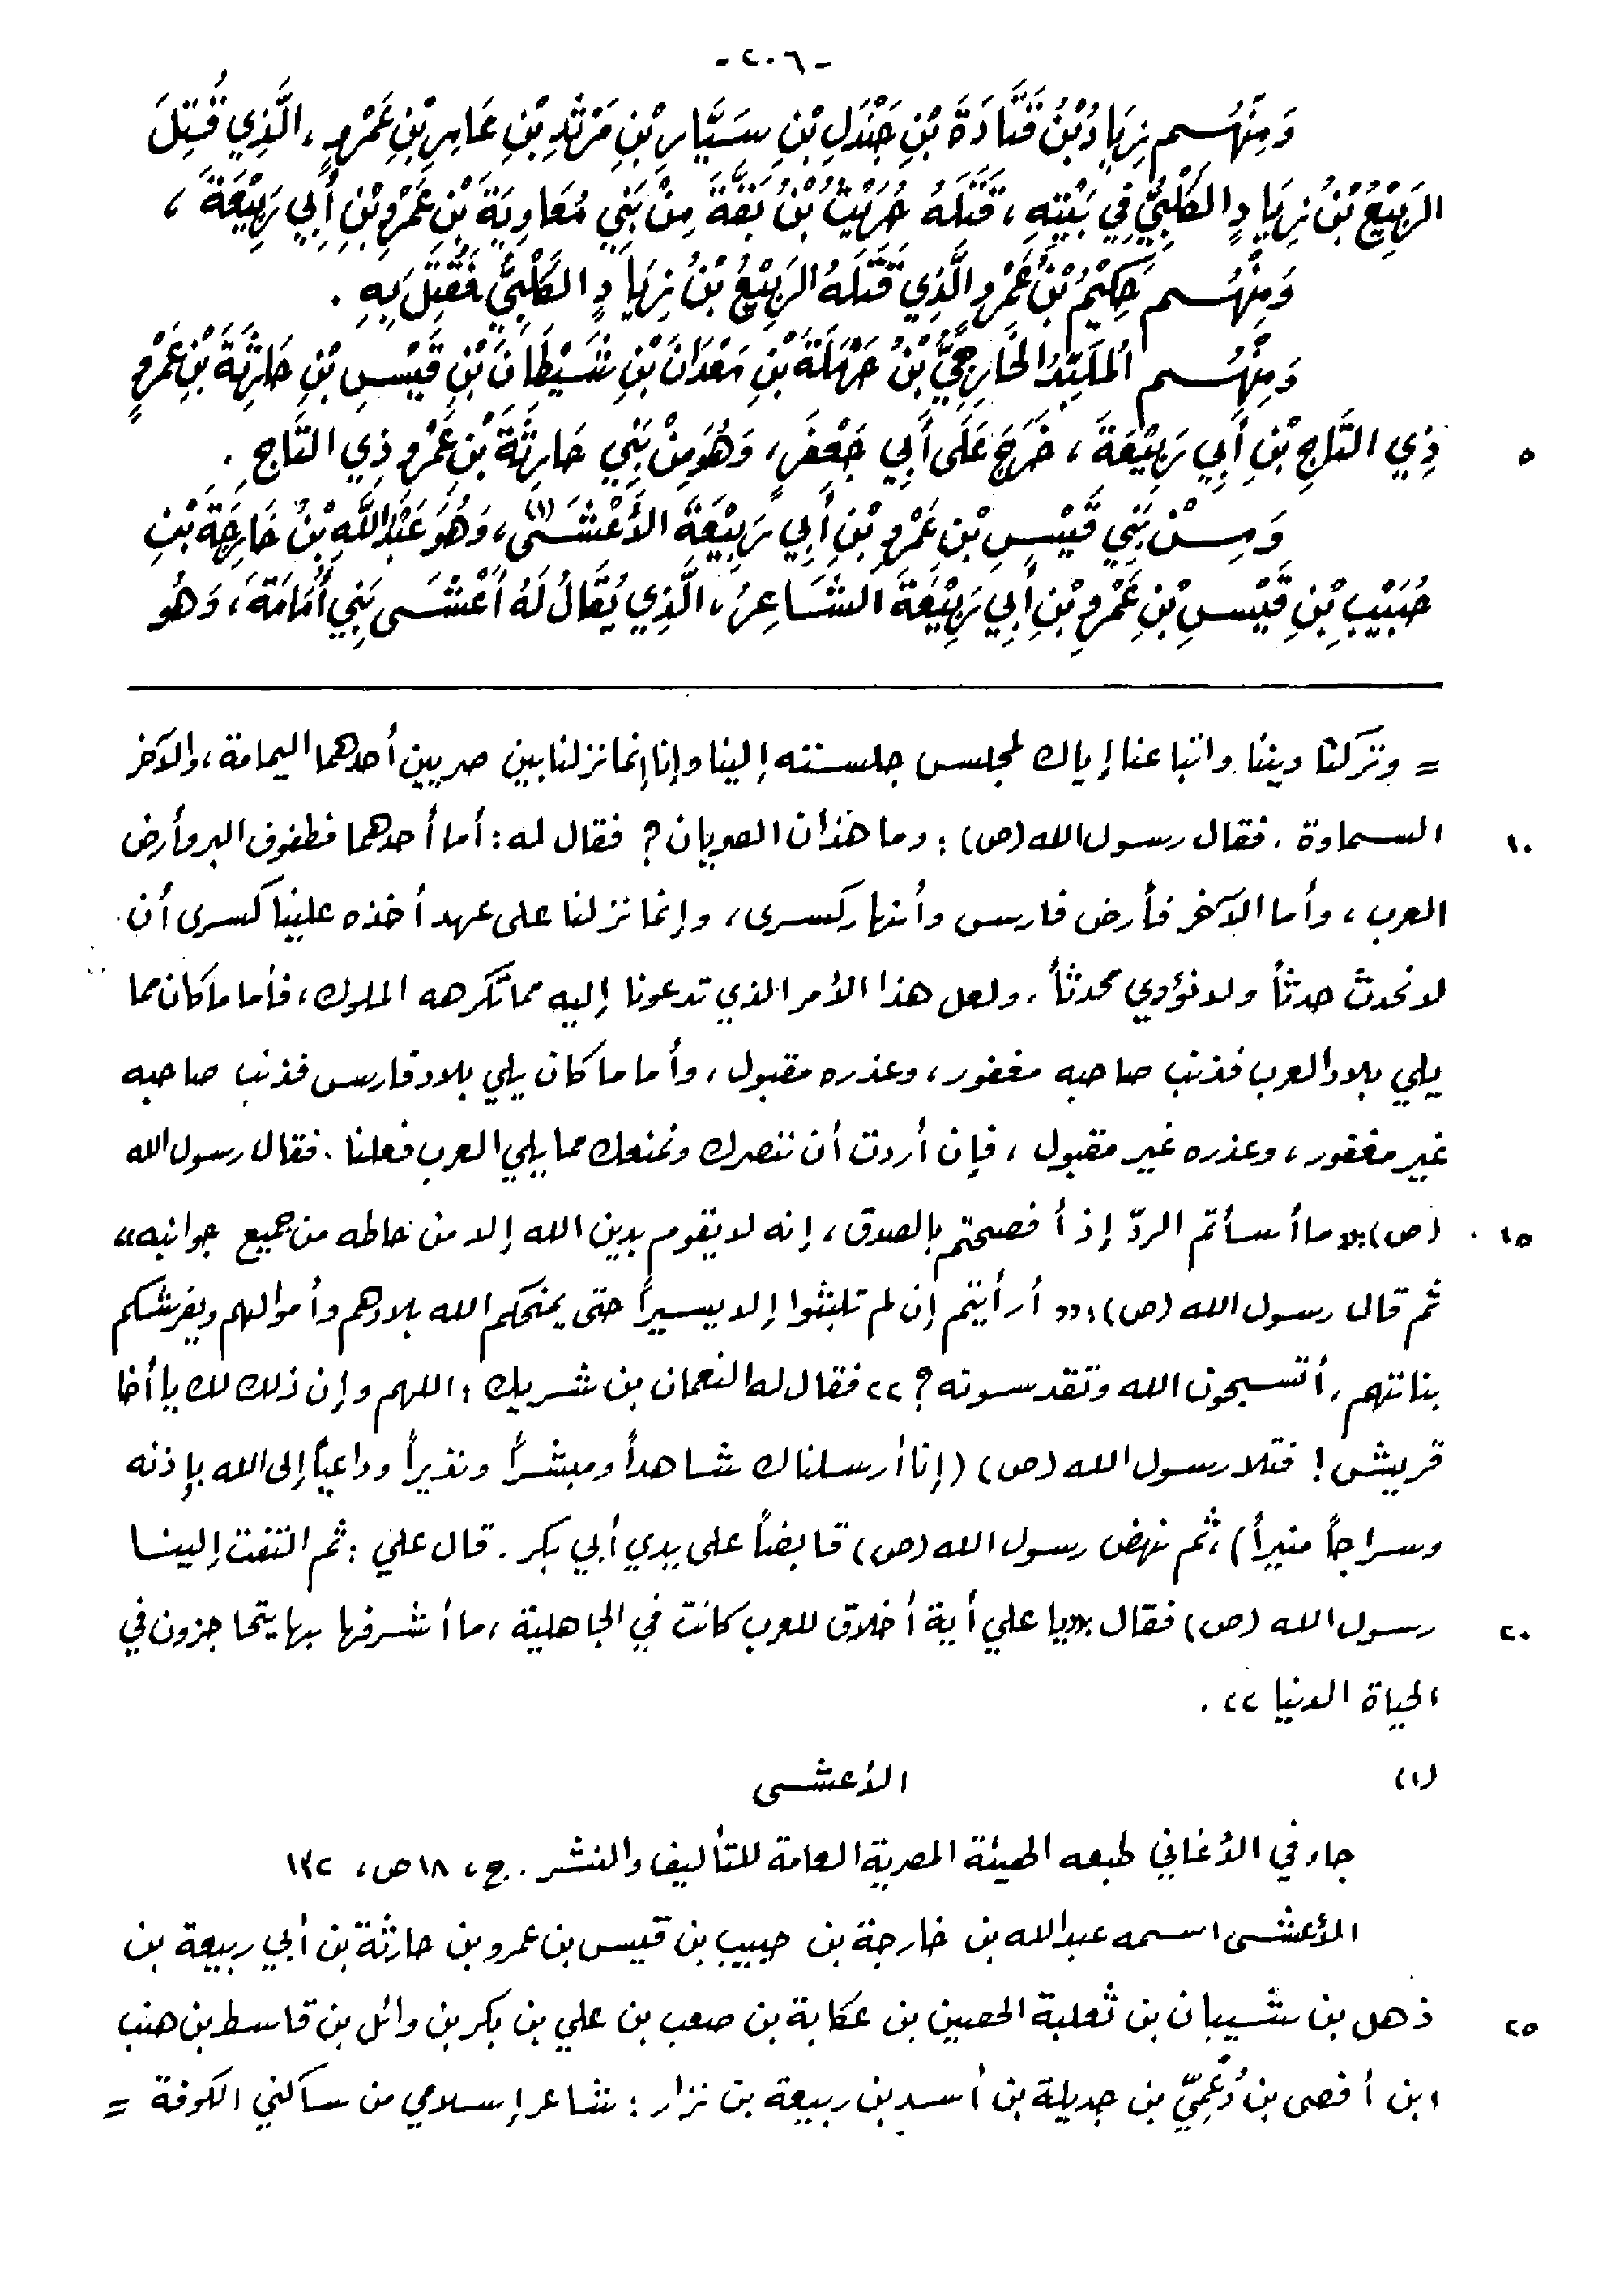 -٢٠٦-
وَمِنْهُم زِيَادُ بْنُ قَتَادَةَ بْنِ جَنْدَلِ بْنِ سَيَّارِ بْنِ مَرْثَدِ بْنِ عَامِرِ بْنِ عَمْرٍو، الَّذِي قُتِلَ
الرَبِيْعُ بْنُ زِيَادٍ الكَلْبِيُّ فِي بَيْتِهِ، قَتَلَهُ حُرَيْثُ بْنُ بَقَّةَ مِنْ بَنِي مُعَاوِيَةَ بْنِ عَمْرِو بْنِ أَبِي رَبِيْعَةَ،
وَمِنْهُم حَكِيْمُ بْنُ عَمْرٍو الَّذِي قَتَلَهُ الرَبِيْعُ بْنُ زِيَادٍ الكَلْبِيُّ فَقُتِلَ بِهِ.
وَمِنْهُم المُلَبِّدُ الخَارِجِيُّ بْنُ حَرْمَلَةَ بْنِ مَعْدَانَ بْنِ شَيْطَانَ بْنِ قَيْسِ بْنِ حَارِثَةَ بْنِ عَمْرٍو
٥ ذِي التَاجِ بْنِ أَبِي رَبِيْعَةَ، خَرَجَ عَلَى أَبِي جَعْفَرٍ، وَهُوَ مِنْ بَنِي حَارِثَةَ بْنِ عَمْرٍو ذِي التَّاجِ.
وَمِنْ بَنِي قَيْسِ بْنِ عَمْرِو بْنِ أَبِي رَبِيْعَةَ الأَعْشَى(١)، وَهُوَ عَبْدُ اللَّهِ بْنُ خَارِجَةَ بْنِ
حُبَيْبِ بْنِ قَيْسِ بْنِ عَمْرِو بْنِ أَبِي رَبِيْعَةَ الشَاعِرُ، الَّذِي يُقَالُ لَهُ أَعْشَى بَنِي أُمَامَةَ، وَهُو
= وتركنا ديننا واتباعنا إياك لمجلس جلسته إلينا وإنا إنما نزلنا بين صريين أحدهما اليمامة، والآخر
١٠ السماوة. فقال رسول الله (ص): وما هذان الصريان؟ فقال له: أما أحدهما فطفوف البر وأرض
العرب، وأما الآخر فأرض فارس وأنهار كسرى، وإنما نزلنا على عهد أخذه علينا كسرى أن
لا نحدث حدثاً ولا نؤوي محدثاً، ولعل هذا الأمر الذي تدعونا إليه مما تكرهه الملوك، فأما ما كان مما
يلي بلاد العرب فذنب صاحبه مغفور، وعذره مقبول، وأما ما كان يلي بلاد فارس فذنب صاحبه
غير مغفور، وعذره غير مقبول، فإن أردت أن ننصرك ونمنعك مما يلي العرب فعلنا. فقال رسول الله
١٥ (ص):«ما أسأتم الردّ إذ أفصحتم بالصدق، إنه لا يقوم بدين الله إلا من حاطه من جميع جوانبه»
ثم قال رسول الله (ص): «أرأيتم إن لم تلبثوا إلا يسيراً حتى يمنحكم الله بلادهم وأموالهم ويفرشكم
بناتهم، أتسبحون الله وتقدسونه؟» فقال له النعمان بن شريك: اللهم وإن ذلك لك يا أخا
قريش! فتلا رسول الله (ص) (إنا أرسلناك شاهداً ومبشراً ونذيراً وداعياً إلى الله بإذنه
وسراجاً منيراً)، ثم نهض رسول الله (ص) قابضاً على يدي أبي بكر. قال علي: ثم التفت إلينا
٢٠ رسول الله (ص) فقال:«يا علي أية أخلاق للعرب كانت في الجاهلية، ما أشرفها بها يتحاجزون في
الحياة الدنيا».
(١) الأعشى
جاء في الأغاني طبعه الهيئة المصرية العامة للتأليف والنشر. ج، ١٨ ص، ١٣٢
الأعشى اسمه عبد الله بن خارجة بن حبيب بن قيس بن عمرو بن حارثة بن أبي ربيعة بن
٢٥ ذهل بن شيبان بن ثعلبة الحصين بن عكابة بن صعب بن علي بن بكر بن وائل بن قاسط بن هنب
ابن أفصى بن دُعْمِيّ بن جديلة بن أسد بن ربيعة بن نزار: شاعر إسلامي من ساكني الكوفة =